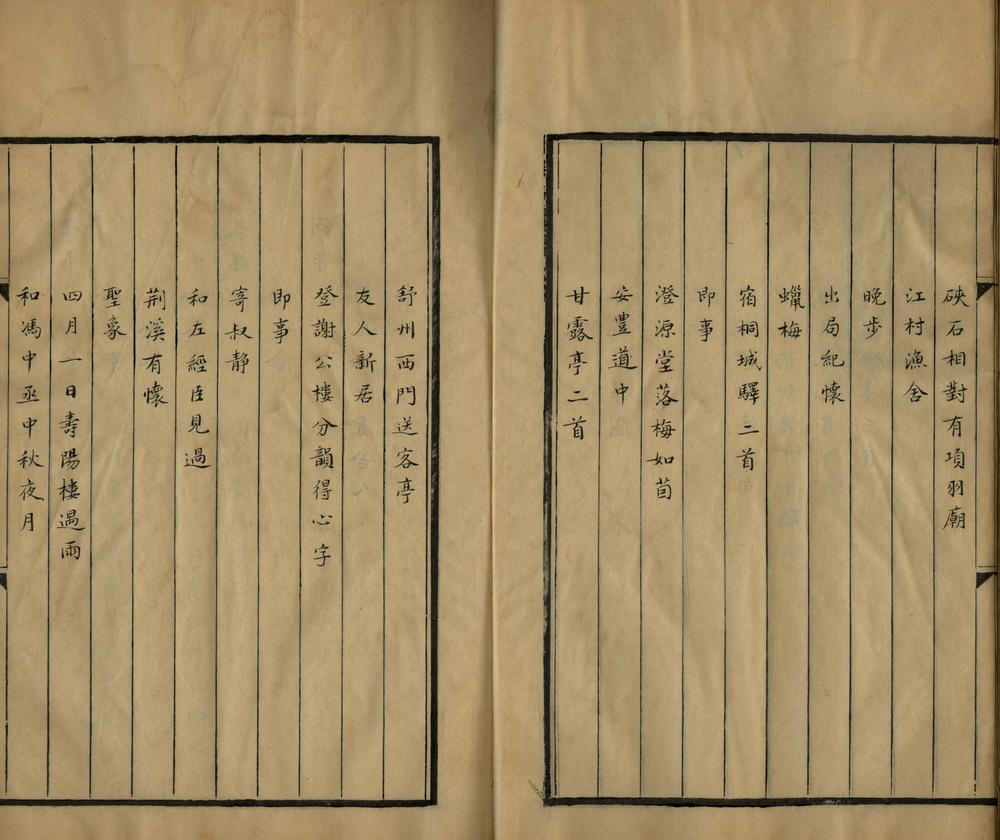 硤石相對有項羽廟
江村漁舍
晚步
出局紀懷
蠟梅
宿桐城驛二首
即事
澄源堂落梅如茵
安豊道中
甘露亭二首
舒州西門送客亭
友人新居
登謝公樓分韻得心字
即事
寄叔静
和左經臣見過
荆溪有懷
聖象
四月一日壽陽樓遇雨
和馮中丞中秋夜月